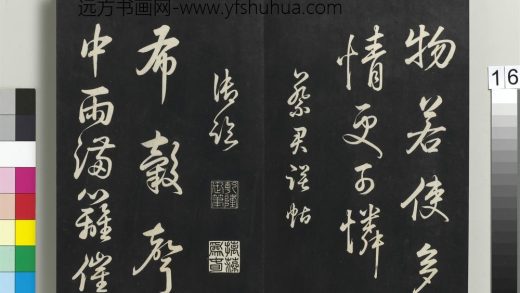 远方书画网-www.yfshuhua.com
物若使多
情更可憐
蔡君謨帖
御臨
摛藻為春
布穀聲
中雨滿籬催
16